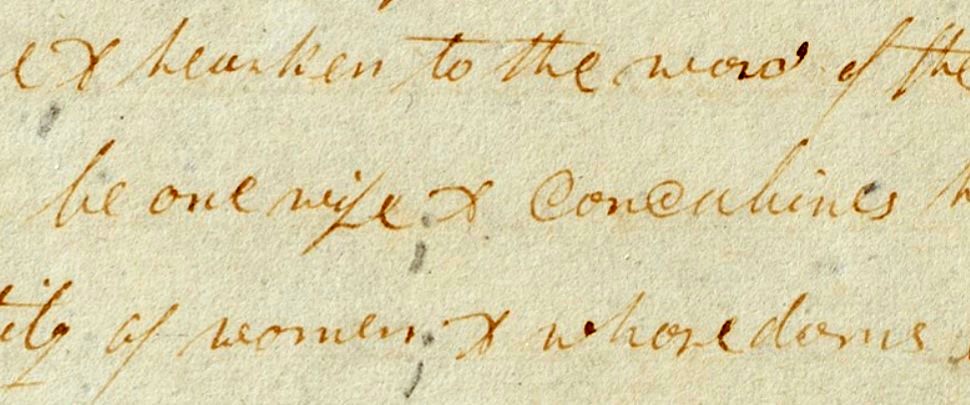 e & hearken to the word of the
be one wife & concubines h
tity of women & whoredoms